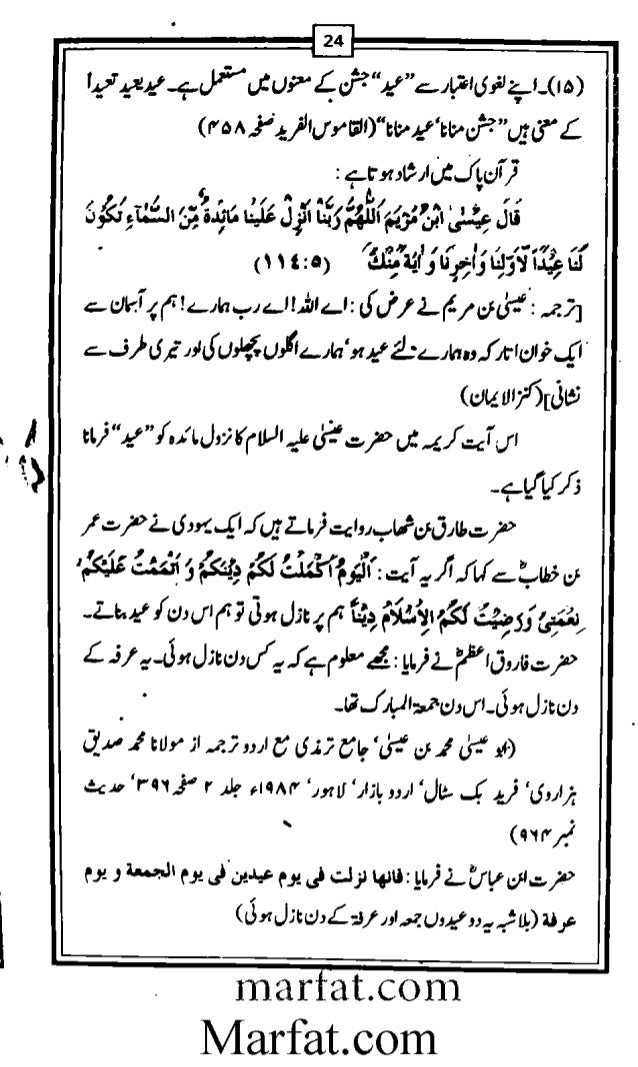 24
(۱۵)۔ اپنے لغوی اعتبار سے ”عید“ جشن کے معنوں میں مستعمل ہے۔ عید یعید تعیداً
کے معنی ہیں ”جشن منانا‘ عید منانا“ (القاموس الفرید صفحہ ۴۵۸)
قرآن پاک میں ارشاد ہوتا ہے :
قَالَ عِیْسَی ابْنُ مَرْیَمَ اَللّٰهُمَّ رَبَّنَا اَنْزِلْ عَلَیْنَا مَائِدَةً مِّنَ السَّمَآءِ تَكُوْنُ
لَنَا عِیْدًا لِّاَوَّلِنَا وَاٰخِرِنَا وَاٰیَةً مِّنْكَ (۵:۱۱۴)
[ترجمہ : عیسیٰ بن مریم نے عرض کی : اے اللہ! اے رب ہمارے! ہم پر آسمان سے
ایک خوان اتار کہ وہ ہمارے لئے عید ہو‘ ہمارے اگلوں پچھلوں کی اور تیری طرف سے
نشانی] (کنز الایمان)
اس آیت کریمہ میں حضرت عیسیٰ علیہ السلام کا نزول مائدہ کو ”عید“ فرمانا
ذکر کیا گیا ہے۔
حضرت طارق بن شہاب روایت فرماتے ہیں کہ ایک یہودی نے حضرت عمر
بن خطابؓ سے کہا کہ اگر یہ آیت : اَلْیَوْمَ اَكْمَلْتُ لَكُمْ دِیْنَكُمْ وَ اَتْمَمْتُ عَلَیْكُمْ
نِعْمَتِیْ وَرَضِیْتُ لَكُمُ الْاِسْلَامَ دِیْنًا ہم پر نازل ہوتی تو ہم اس دن کو عید بناتے۔
حضرت فاروق اعظمؓ نے فرمایا : مجھے معلوم ہے کہ یہ کس دن نازل ہوئی۔ یہ عرفہ کے
دن نازل ہوئی۔ اس دن جمعۃ المبارک تھا۔
(ابو عیسیٰ محمد بن عیسیٰ‘ جامع ترمذی مع اردو ترجمہ از مولانا محمد صدیق
ہزاروی‘ فرید بک سٹال‘ اردو بازار‘ لاہور‘ ۱۹۸۴ء جلد ۲ صفحہ ۳۹۶‘ حدیث
نمبر ۹۶۴)
حضرت ابن عباسؓ نے فرمایا : فانها نزلت فی یوم عیدین فی یوم الجمعة و یوم
عرفة (بلا شبہ یہ دو عیدوں جمعہ اور عرفۃ کے دن نازل ہوئی)
marfat.com
Marfat.com